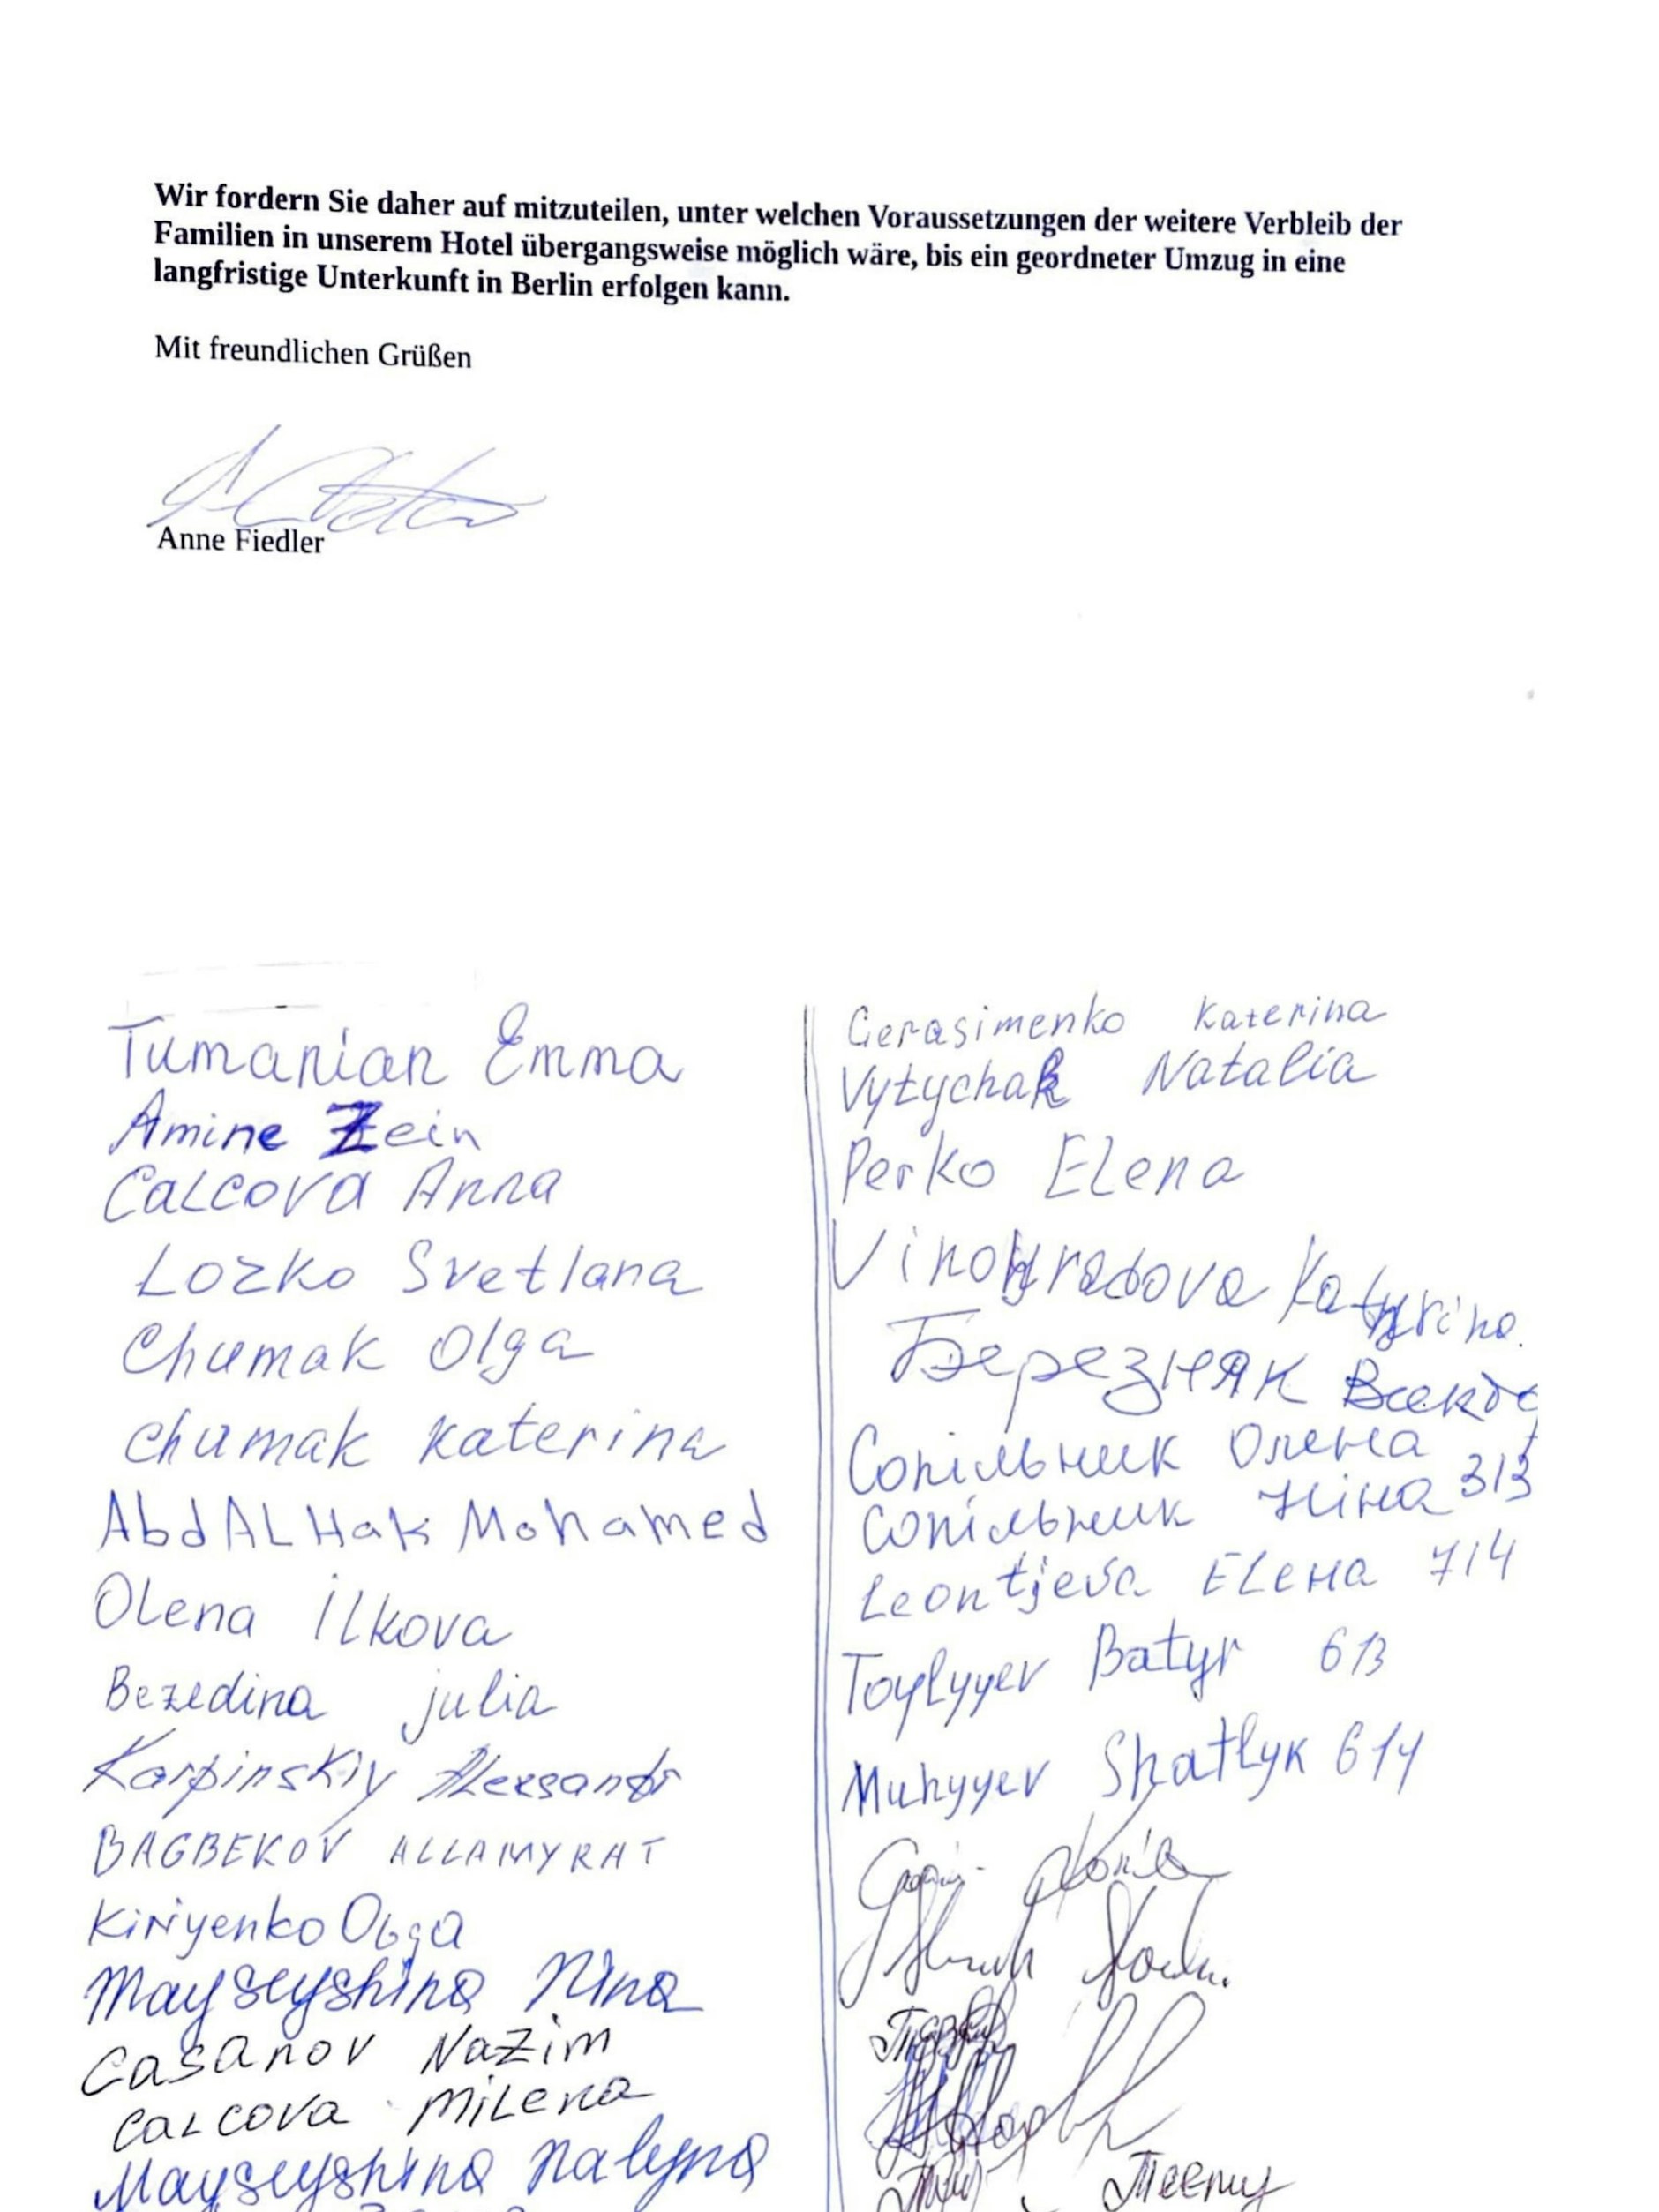 Wir fordern Sie daher auf mitzuteilen, unter welchen Voraussetzungen der weitere Verbleib der
Familien in unserem Hotel übergangsweise möglich wäre, bis ein geordneter Umzug in eine
langfristige Unterkunft in Berlin erfolgen kann.
Mit freundlichen Grüßen
Anne Fiedler
Tumanian Emma
Amine Zein
Calcova Anna
Lozko Svetlana
Chumak Olga
Chumak Katerina
AbdALHak Mohamed
Olena Ilkova
Bezedina julia
Karpinskiy Alexsandr
BAGBEKOV ALLAMYRAT
Kiriyenko
Mayseyshina Nina
Casanov Nazim
Calcova Milena
Mayseyshina
Gerasimenko Katerina
Vytychak Natalia
Perko Elena
Vinohradova Katyrina.
Березняк
Сопільник Олена
Сопільник Ніна 313
Leontjeva Elена 714
Toylyyev Batyr 613
Muhyyev Shatlyk 614